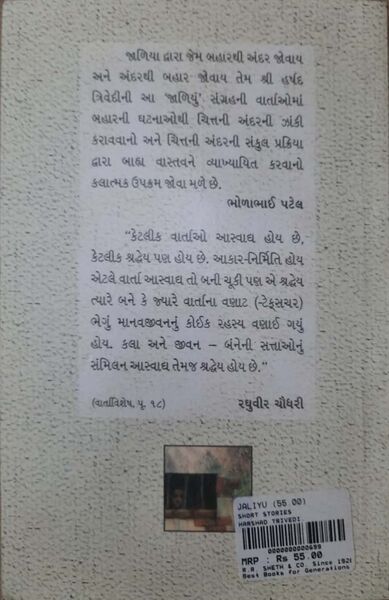 જાળિયા દ્વારા જેમ બહારથી અંદર જોવાય
અને અંદરથી બહાર જોવાય તેમ શ્રી હર્ષદ
ત્રિવેદીની આ ‘જાળિયું’ સંગ્રહની વાર્તાઓમાં
બહારની ઘટનાઓથી ચિત્તની અંદરની ઝાંકી
કરાવવાનો અને ચિત્તની અંદરની સંકુલ પ્રક્રિયા
દ્વારા બાહ્ય વાસ્તવને વ્યાખ્યાયિત કરવાનો
કલાત્મક ઉપક્રમ જોવા મળે છે.
ભોળાભાઈ પટેલ
“કેટલીક વાર્તાઓ આસ્વાદ્ય હોય છે,
કેટલીક શ્રદ્ધેય પણ હોય છે. આકાર-નિર્મિતિ હોય
એટલે વાર્તા આસ્વાદ્ય તો બની ચૂકી પણ એ શ્રદ્ધેય
ત્યારે બને કે જ્યારે વાર્તાના વણાટ (-ટેક્સચર)
ભેગું માનવજીવનનું કોઈક રહસ્ય વણાઈ ગયું
હોય. કલા અને જીવન – બંનેની સત્તાઓનું
સંમિલન આસ્વાદ્ય તેમજ શ્રદ્ધેય હોય છે.”
(વાર્તાવિશેષ, પૃ. ૧૮) રઘુવીર ચૌધરી
JALIYU (55 00)
SHORT STORIES
HARSHAD TRIVEDI
0000000000699
MRP : Rs 55.00
R.R. SHETH & CO. Since 1926
Best Books for Generations